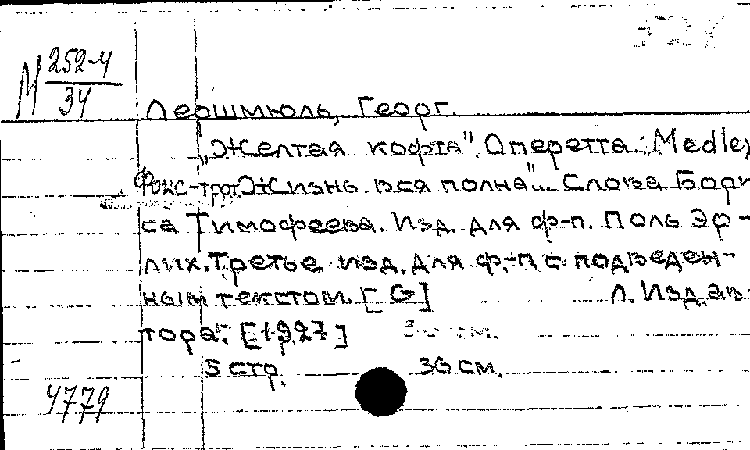 М 252-4
34
Лершмюль, Георг.
„Желтая кофта". Оперетта. Medley
Фокс-трот. „Жизнь вся полна"... Слова Бори-
са Тимофеева. Изд. для ф-п. Поль Эр-
лих. Третье изд. для ф.-п. с подведен-
ным текстом. [G] Л. Изд. ав-
тора. [1927]
5 стр. 36 см.
4779